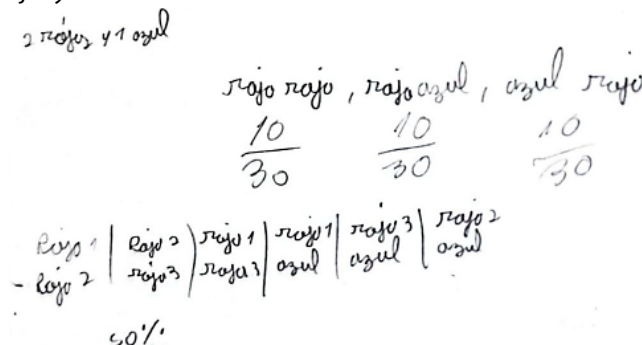 2 rojas y 1 azul
rojo rojo, rojo azul, azul rojo
10/30 10/30 10/30
Rojo 1 | Rojo 2 | rojo 1 | rojo 1 | rojo 3 | rojo 2
- Rojo 2 | rojo 3 | rojo 3 | azul | azul | azul
50%